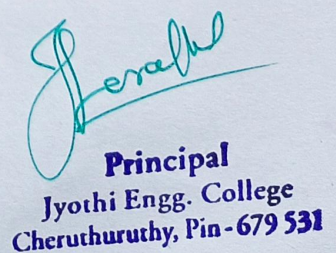 Principal
Jyothi Engg. College
Cheruthuruthy, Pin-679 531